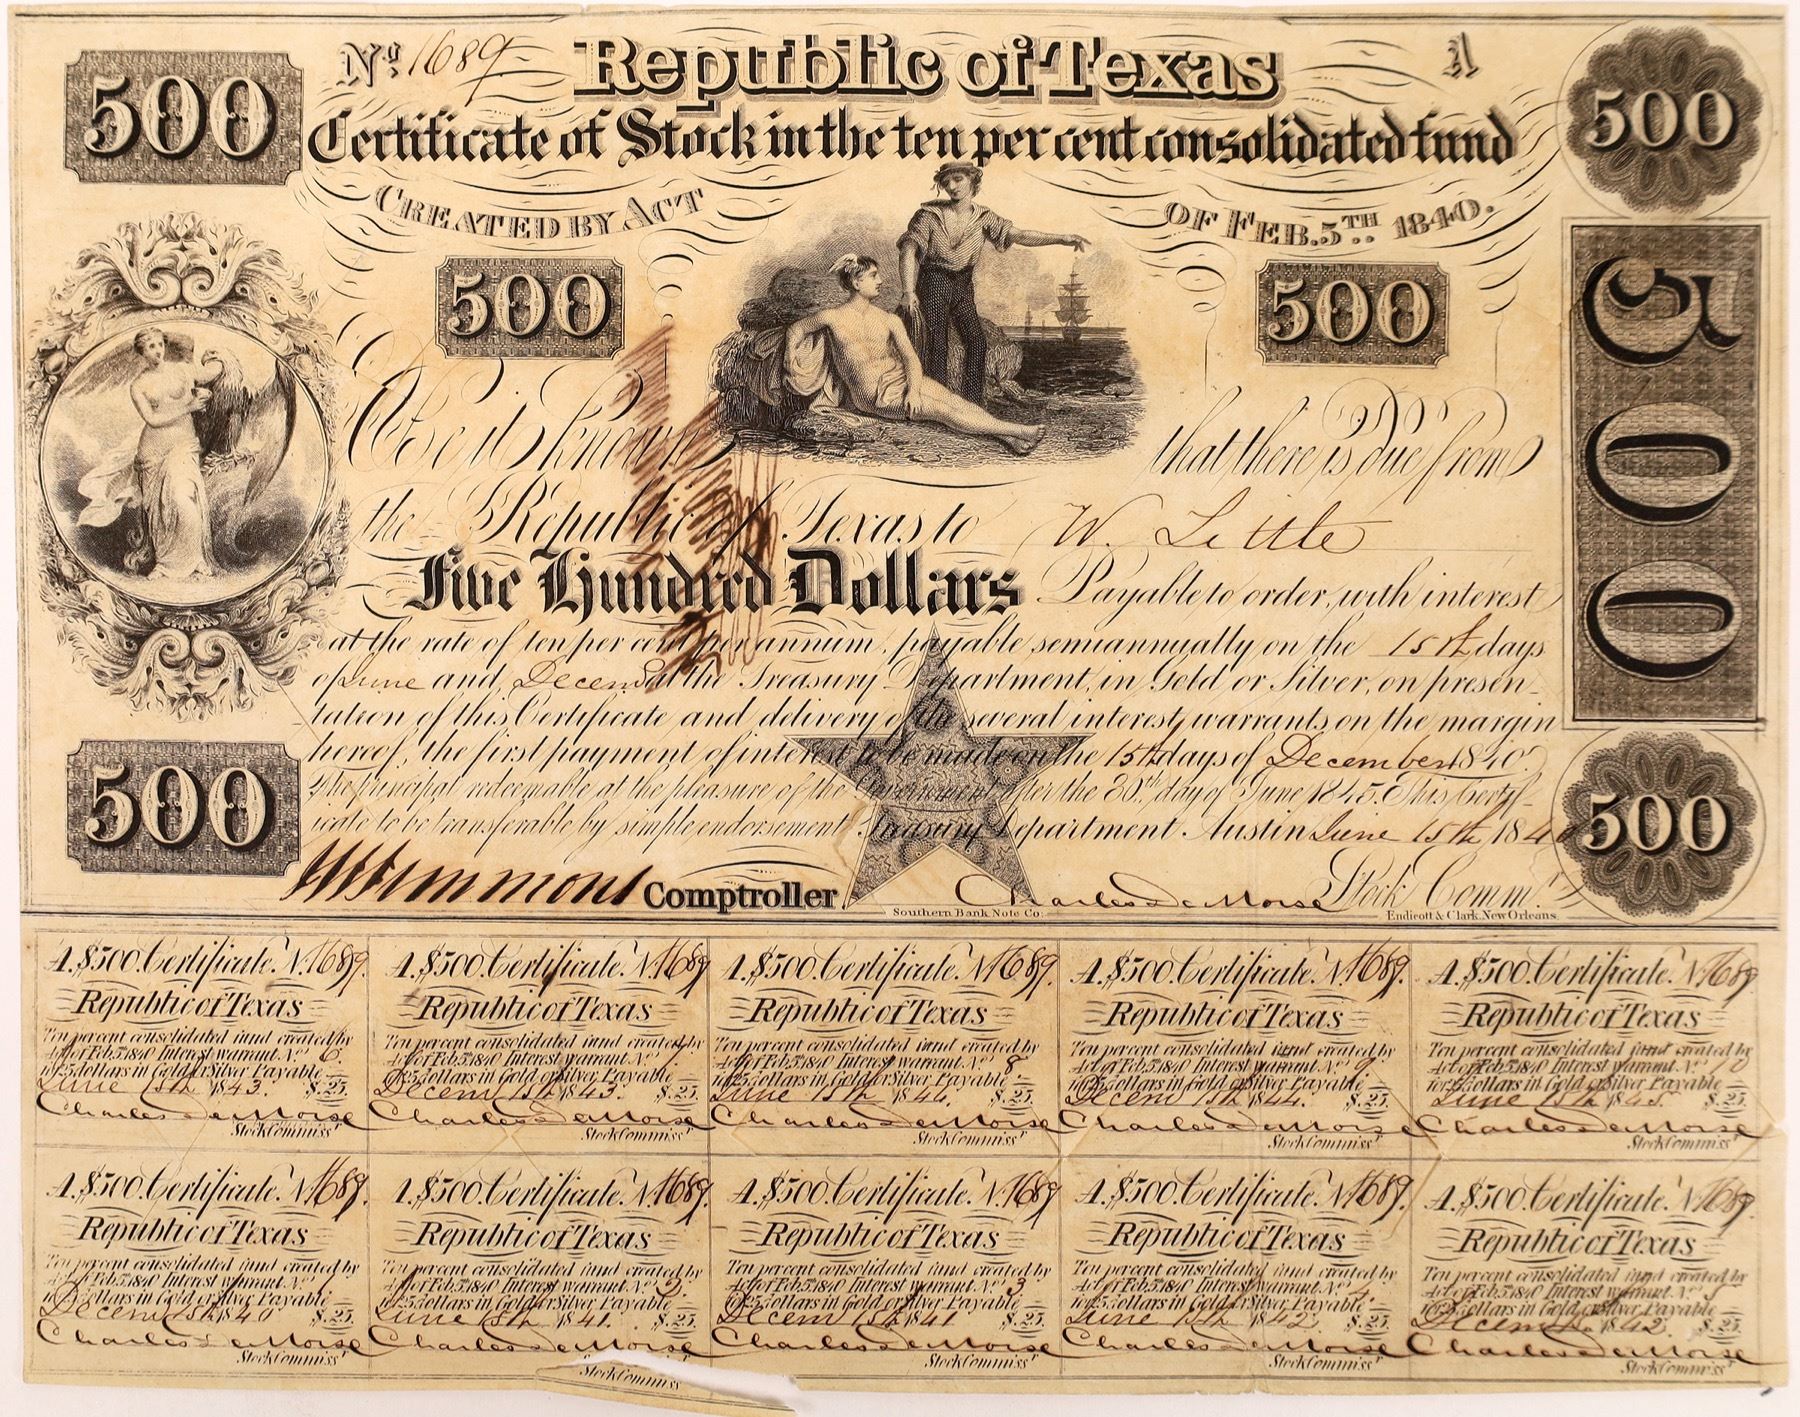 500
No. 1689
Republic of Texas
A
500
Certificate of Stock in the ten per cent consolidated fund
CREATED BY ACT OF FEB. 5TH 1840.
500
500
500
Be it known that there is due from
the Republic of Texas to W. Little
Five Hundred Dollars Payable to order, with interest
at the rate of ten per cent per annum, payable semiannually on the 15th days
of June and Decem at the Treasury Department, in Gold or Silver, on presen-
-tation of this Certificate and delivery of the several interest warrants on the margin
hereof, the first payment of interest to be made on the 15th days of December 1840.
The principal redeemable at the pleasure of the Government after the 30th day of June 1845. This Certif-
icate to be transferable by simple endorsement Treasury Department Austin June 15th 1840
500
500
Comptroller
Charles DeMorse Stock Commr.
Southern Bank Note Co:
Endicott & Clark. New Orleans.
A.$500. Certificate. N.1689.
Republic of Texas
Ten per cent consolidated fund created by
Act of Feb.5.1840 Interest warrant No. 6.
for 25 dollars in Gold or Silver Payable
June 15th 1843. $.25.
Charles DeMorse
Stock Commissr
A.$500. Certificate. N.1689
Republic of Texas
Ten per cent consolidated fund created by
Act of Feb.5.1840 Interest warrant No. 7
for 25 dollars in Gold or Silver Payable
Decem 15th 1843. $.25.
Charles DeMorse
Stock Commissr
A.$500. Certificate. N.1689.
Republic of Texas
Ten per cent consolidated fund created by
Act of Feb.5.1840 Interest warrant No. 8.
for 25 dollars in Gold or Silver Payable
June 15th 1844. $.25.
Charles DeMorse
Stock Commissr
A.$500. Certificate. N.1689.
Republic of Texas
Ten per cent consolidated fund created by
Act of Feb.5.1840 Interest warrant No. 9
for 25 dollars in Gold or Silver Payable
Decem 15th 1844. $.25.
Charles DeMorse
Stock Commissr
A.$500. Certificate. N.1689
Republic of Texas
Ten per cent consolidated fund created by
Act of Feb.5.1840 Interest warrant No. 10
for 25 dollars in Gold or Silver Payable
June 15th 1845. $.25.
Charles DeMorse
Stock Commissr
A.$500. Certificate. N.1689.
Republic of Texas
Ten per cent consolidated fund created by
Act of Feb.5.1840 Interest warrant No. 1
for 25 dollars in Gold or Silver Payable
Decem 15th 1840 $.25.
Charles DeMorse
Stock Commissr
A.$500. Certificate. N.1689.
Republic of Texas
Ten per cent consolidated fund created by
Act of Feb.5.1840 Interest warrant No. 2.
for 25 dollars in Gold or Silver Payable
June 15th 1841. $.25.
Charles DeMorse
Stock Commiss
A.$500. Certificate. N.1689
Republic of Texas
Ten per cent consolidated fund created by
Act of Feb.5.1840 Interest warrant No. 3
for 25 dollars in Gold or Silver Payable
Decem 15th 1841 $.25.
Charles DeMorse
Stock Commissr
A.$500. Certificate. N.1689.
Republic of Texas
Ten per cent consolidated fund created by
Act of Feb.5.1840 Interest warrant No. 4
for 25 dollars in Gold or Silver Payable
June 15th 1842. $.25.
Charles DeMorse
Stock Commissr
A.$500. Certificate. N.1689
Republic of Texas
Ten per cent consolidated fund created by
Act of Feb.5.1840 Interest warrant No. 5
for 25 dollars in Gold or Silver Payable
Decem 1842. $.25.
Charles DeMorse
Stock Commissr